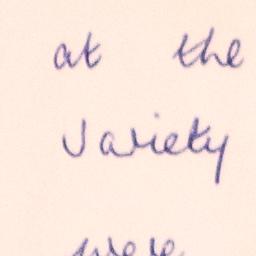 at the
Variety
were